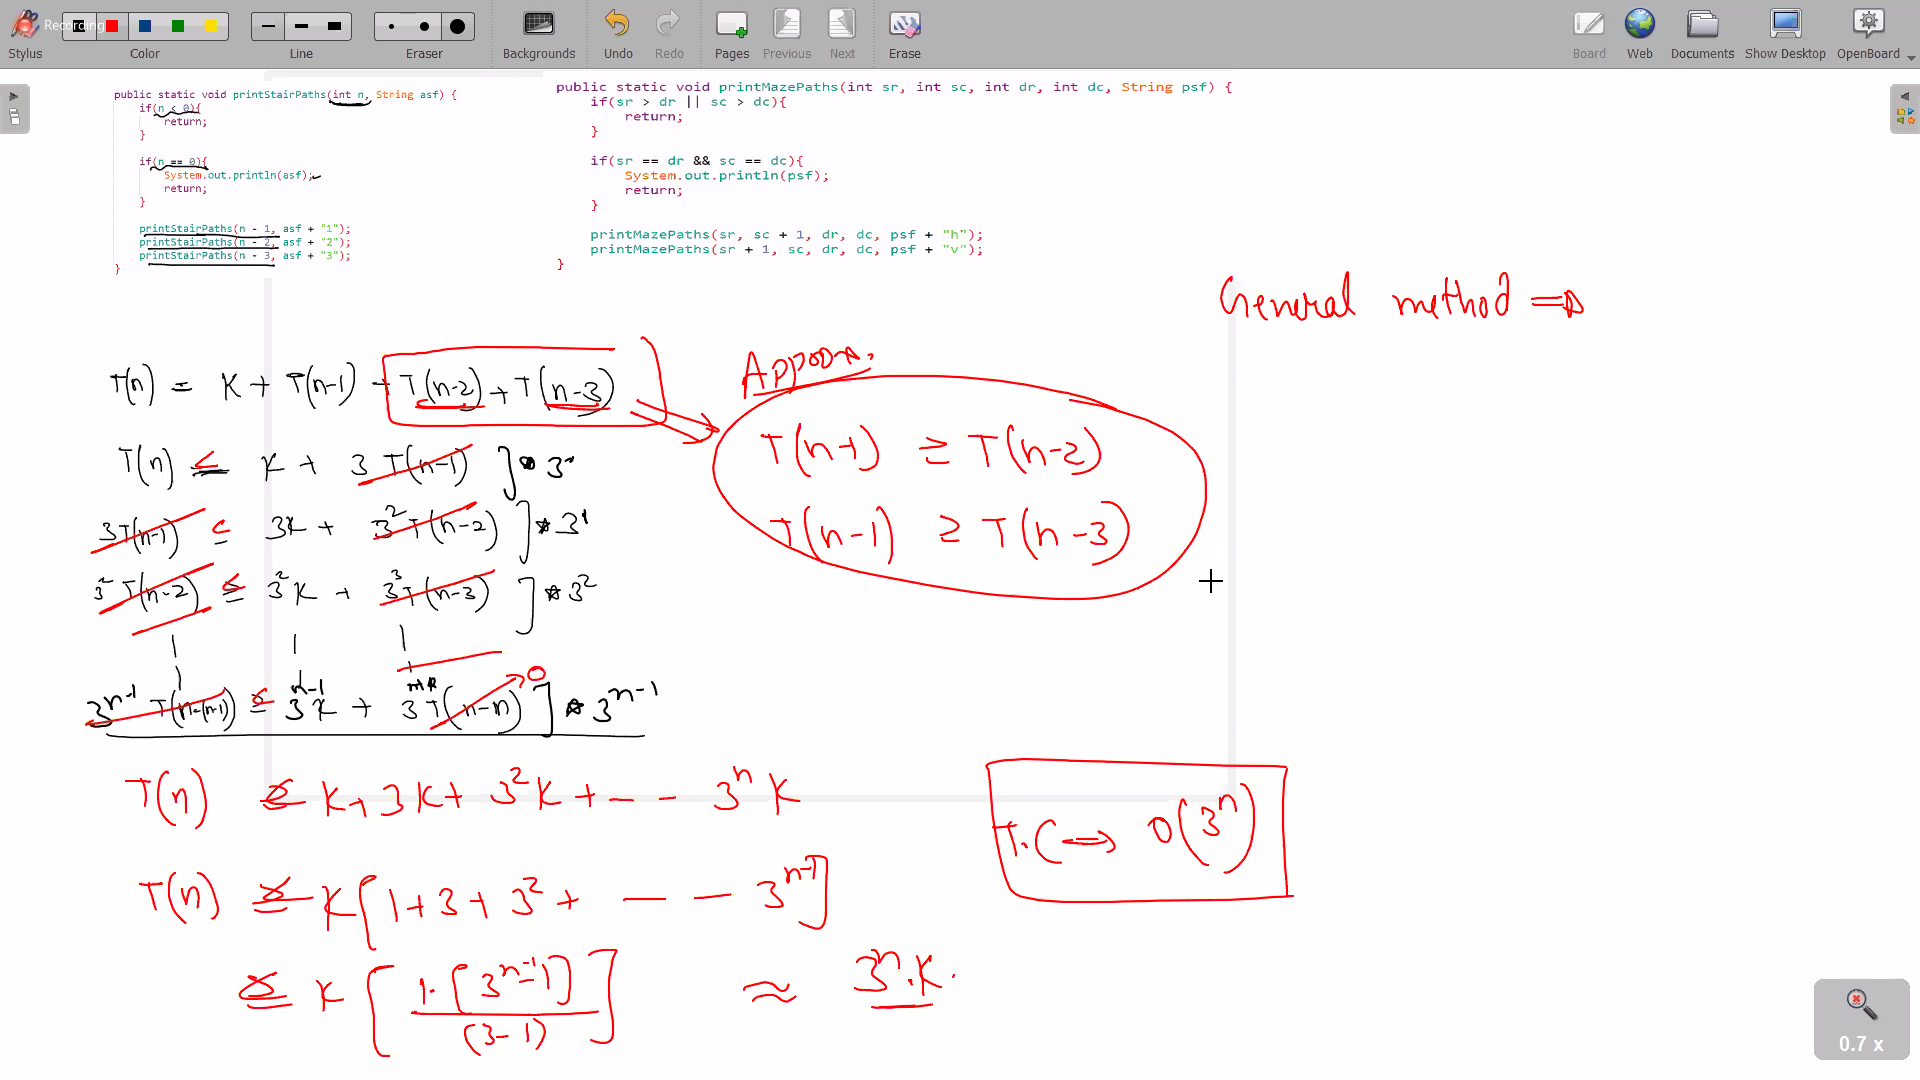 Recording
Stylus Color Line Eraser Backgrounds Undo Redo Pages Previous Next Erase Board Web Documents Show Desktop OpenBoard
public static void printStairPaths(int n, String asf) {
if(n < 0){
return;
}
if(n == 0){
System.out.println(asf);
return;
}
printStairPaths(n - 1, asf + "1");
printStairPaths(n - 2, asf + "2");
printStairPaths(n - 3, asf + "3");
}
public static void printMazePaths(int sr, int sc, int dr, int dc, String psf) {
if(sr > dr || sc > dc){
return;
}
if(sr == dr && sc == dc){
System.out.println(psf);
return;
}
printMazePaths(sr, sc + 1, dr, dc, psf + "h");
printMazePaths(sr + 1, sc, dr, dc, psf + "v");
}
General method ⇒
T(n) = K + T(n-1) + T(n-2) + T(n-3)
T(n) ≤ K + 3 T(n-1) ] * 3°
3T(n-1) ≤ 3K + 3² T(n-2) ] * 3¹
3² T(n-2) ≤ 3² K + 3³ T(n-3) ] * 3²
3^n-1 T(n-(n-1)) ≤ 3^n-1 K + 3 T(n-n) → 0 ] * 3^n-1
Approx.
T(n-1) ≥ T(n-2)
T(n-1) ≥ T(n-3)
T(n) ≤ K + 3K + 3² K + - - 3^n K
T(n) ≤ K [ 1 + 3 + 3² + - - 3^n-1 ]
≤ K [ 1. [3^n - 1] / (3-1) ] ≈ 3^n . K .
T.C ⇒ O(3^n)
0.7 x